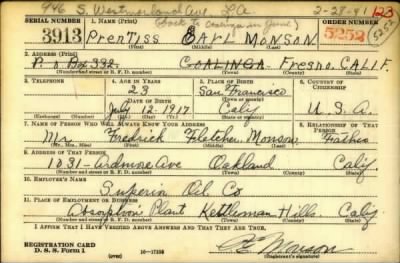 946 S. Westmorland Ave L.A. 2-28-41 123
SERIAL NUMBER 1. NAME (Print) (back to Coalinga in June) ORDER NUMBER
3913 PrenTiss EARL MONSON 5252 (5252)
(First) (Middle) (Last)
2. ADDRESS (Print)
P. o Box 332. COALINGA. Fresno. CALIF
(Number and street or R. F. D. number) (Town) (County) (State)
3. TELEPHONE 4. AGE IN YEARS 5. PLACE OF BIRTH 6. COUNTRY OF CITIZENSHIP
23 San Francisco
(Town or county)
DATE OF BIRTH
July 12 1917 Calif U. S. A.
(Exchange) (Number) (Mo.) (Day) (Yr.) (State or country)
7. NAME OF PERSON WHO WILL ALWAYS KNOW YOUR ADDRESS 8. RELATIONSHIP OF THAT PERSON
Mr Fredrick Fletcher Monson Father
(Mr., Mrs., Miss) (First) (Middle) (Last)
9. ADDRESS OF THAT PERSON
1031-Ardmore Ave Oakland Calif.
(Number and street or R. F. D. number) (Town) (County) (State)
10. EMPLOYER'S NAME
Superior Oil Co
11. PLACE OF EMPLOYMENT OR BUSINESS
Absorption Plant Kettleman Hills. Calif
(Number and street or R. F. D. number) (Town) (County) (State)
I AFFIRM THAT I HAVE VERIFIED ABOVE ANSWERS AND THAT THEY ARE TRUE.
REGISTRATION CARD
D. S. S. Form 1 (over) 16-17105 Monson
(Registrant's signature)